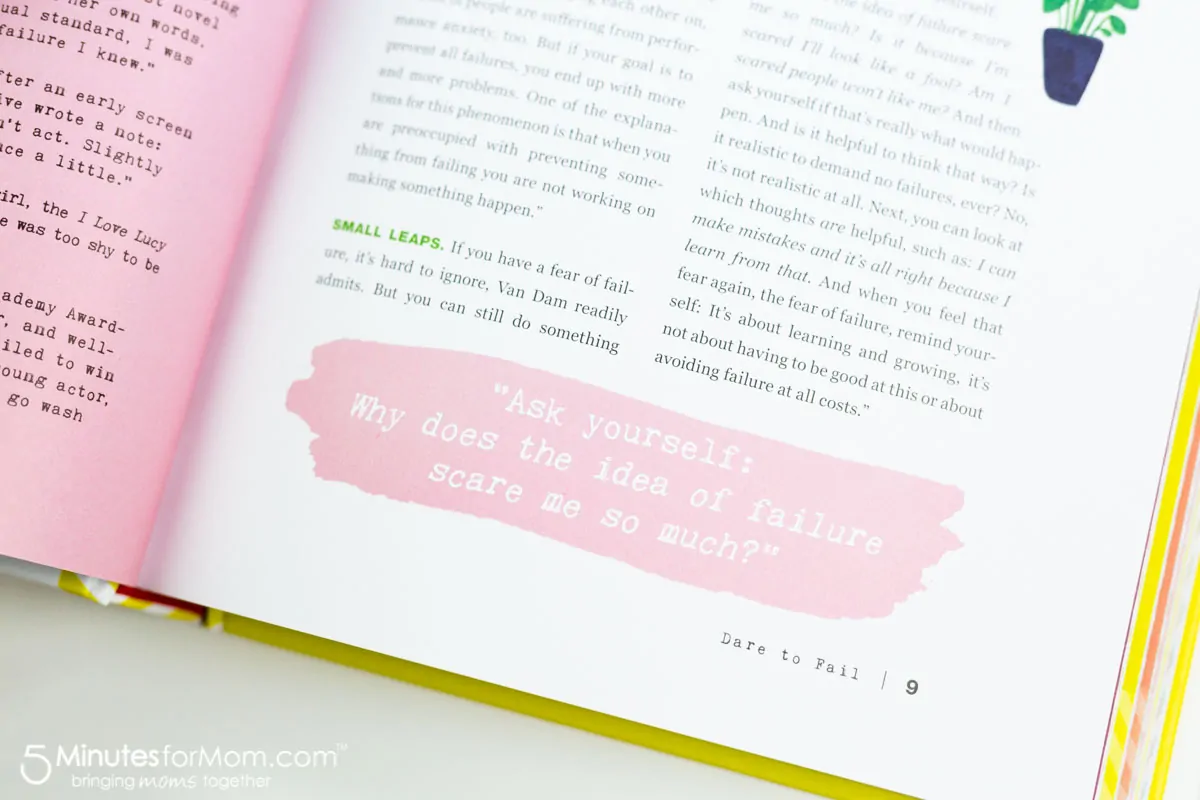 novel
her own words.
ual standard, I was
failure I knew."
fter an early screen
ive wrote a note:
n't act. Slightly
ace a little."
girl, the I Love Lucy
e was too shy to be
ademy Award-
r, and well-
iled to win
oung actor,
go wash
people are suffering from perfor-
mance anxiety, too. But if your goal is to
prevent all failures, you end up with more
and more problems. One of the explana-
tions for this phenomenon is that when you
are preoccupied with preventing some-
thing from failing you are not working on
making something happen."
SMALL LEAPS. If you have a fear of fail-
ure, it's hard to ignore, Van Dam readily
admits. But you can still do something
the idea of failure scare
me so much? Is it because I'm
scared I'll look like a fool? Am I
scared people won't like me? And then
ask yourself if that's really what would hap-
pen. And is it helpful to think that way? Is
it realistic to demand no failures, ever? No,
it's not realistic at all. Next, you can look at
which thoughts are helpful, such as: I can
make mistakes and it's all right because I
learn from that. And when you feel that
fear again, the fear of failure, remind your-
self: It's about learning and growing, it's
not about having to be good at this or about
avoiding failure at all costs."
"Ask yourself:
Why does the idea of failure
scare me so much?"
Dare to Fail | 9
5 MinutesforMom.com™
bringing moms together